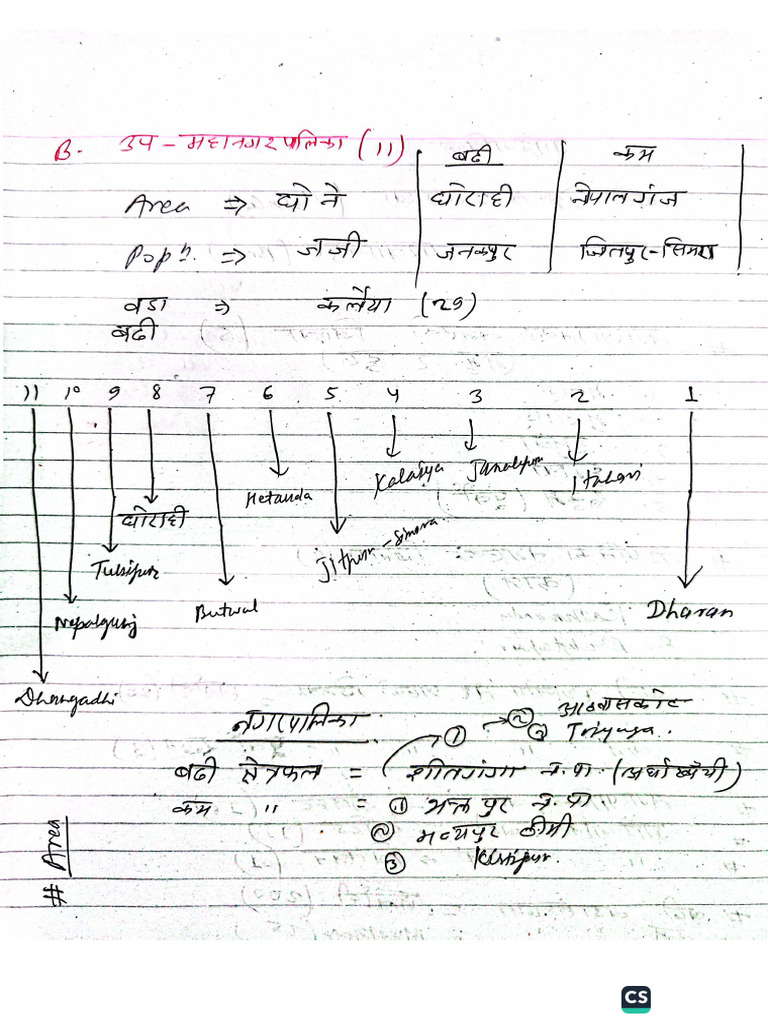 B. उप-महानगरपालिका (11)
बढी कम
Area ⇒ घो ने घोराही नेपालगंज
Popⁿ. ⇒ जजी जनकपुर जितपुर-सिमरा
वडा ⇒ कलैया (29)
बढी
11 10 9 8 7 6 5 4 3 2 1
Kalaiya Janakpur Itahari
Hetauda
घोराही Jitpur-Simara
Tulsipur
Nepalgunj Butwal Dharan
Dhangadhi
नगरपालिका → ② आठबिसकोट
① ③ Triyuga.
बढी क्षेत्रफल = शीतगंगा न.पा. (अर्घाखाँची)
कम " = ① भक्तपुर न.पा
② मध्यपुर ठीमी
③ Kirtipur.
# Area
CS